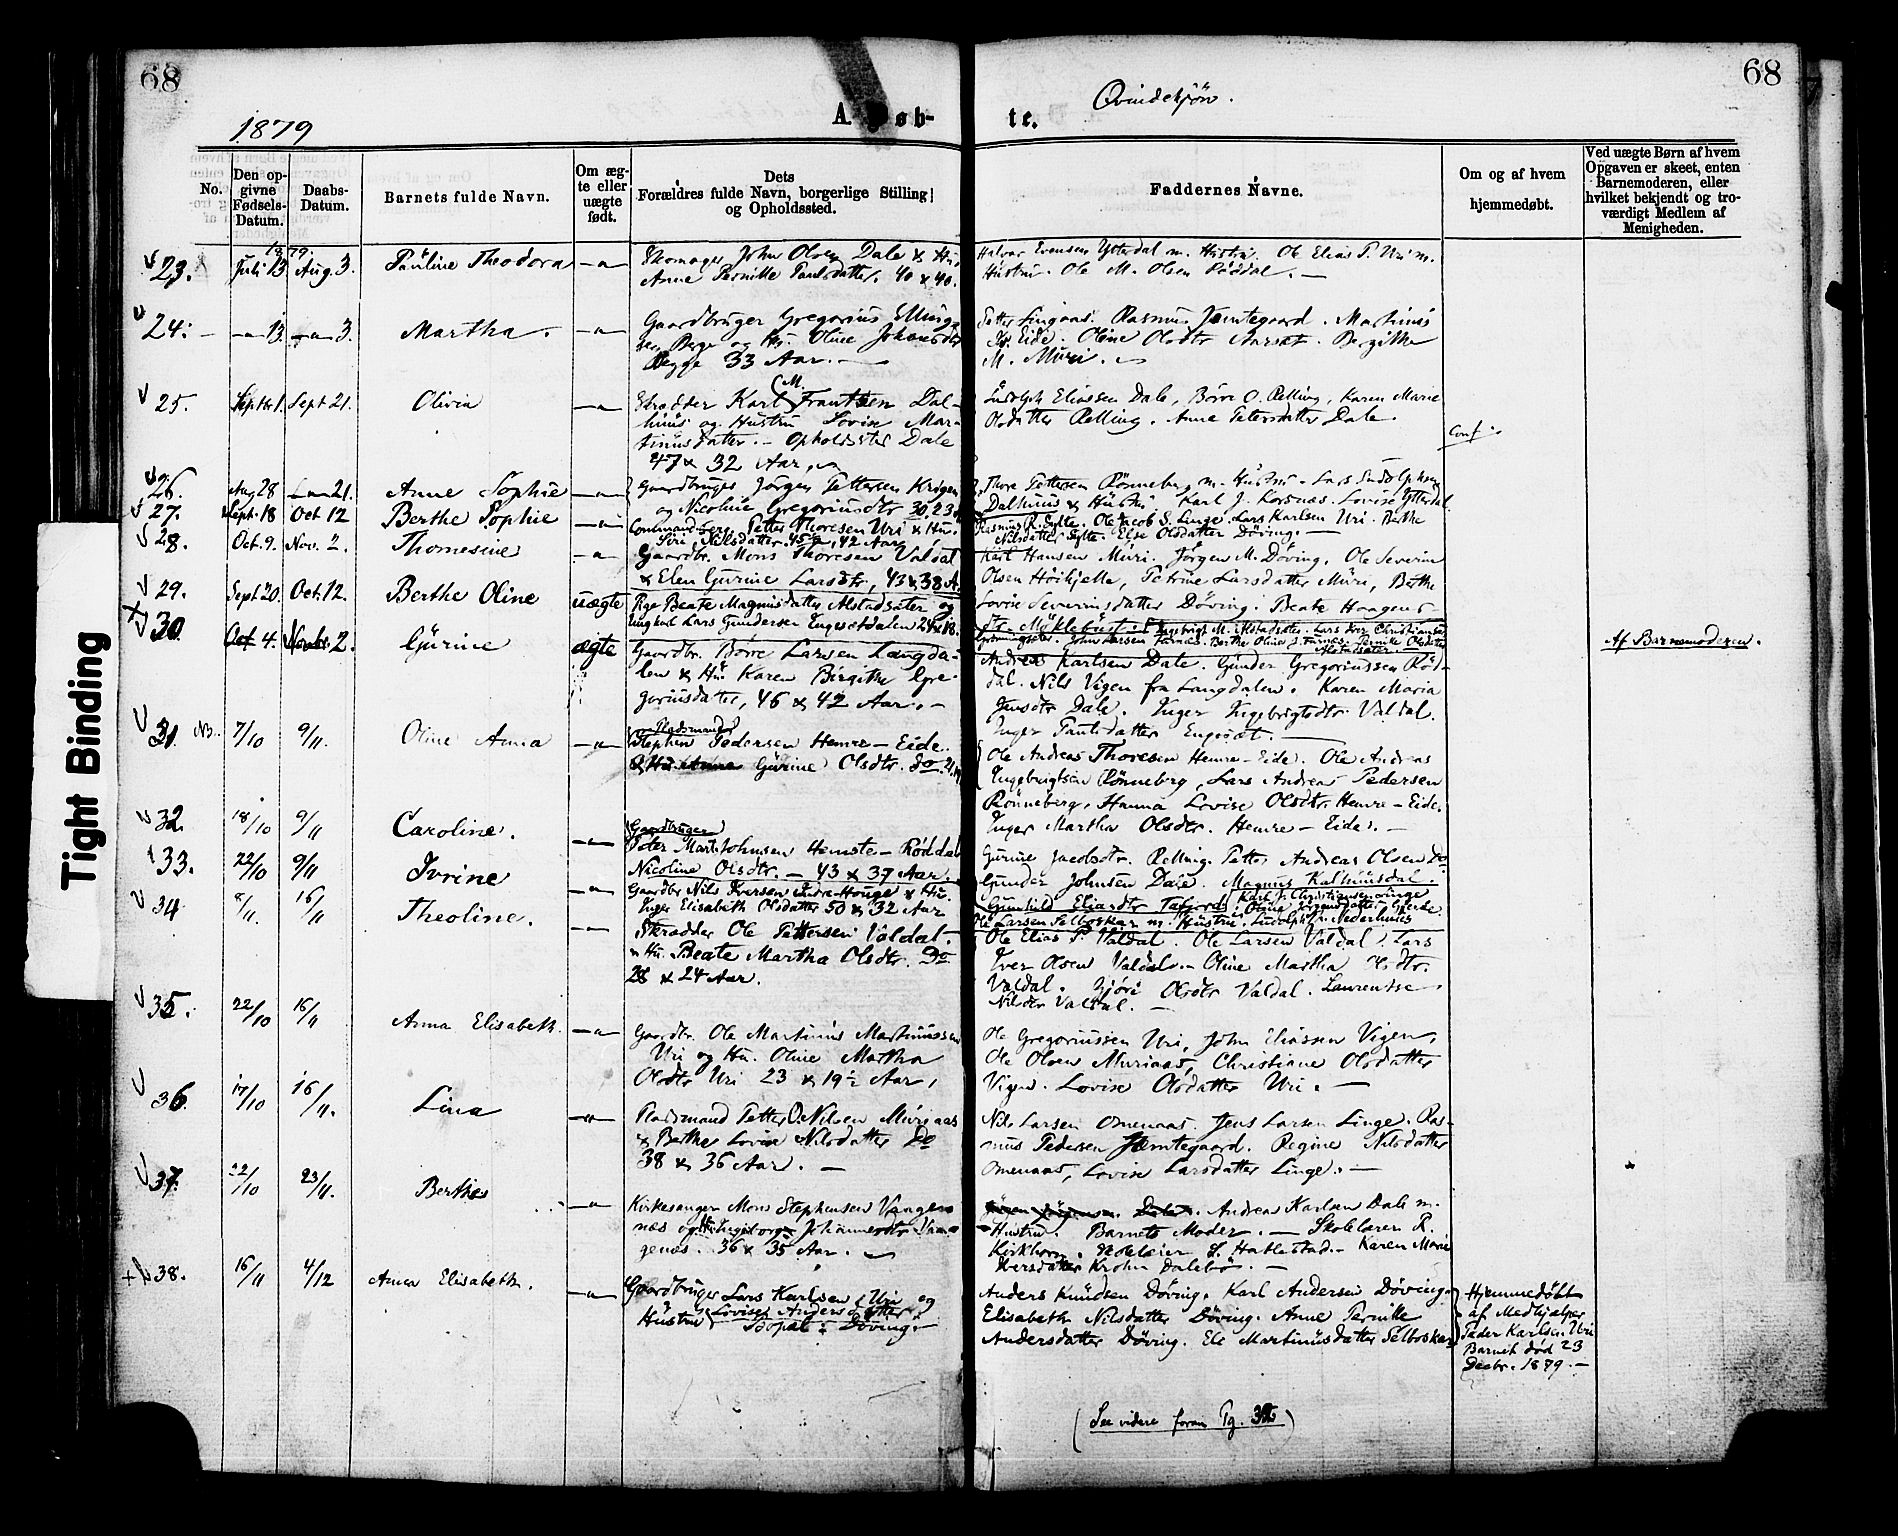 68
68
Qvindekjön.
1879
A. Døb-
te.
No.
Den op-
givne
Fødsels-
Datum.
Daabs-
Datum.
Barnets fulde Navn.
Om æg-
te eller
uægte
født.
Dets
Forældres fulde Navn, borgerlige Stilling
og Opholdssted.
Faddernes Navne.
Om og af hvem
hjemmedøbt.
Ved uægte Børn af hvem
Opgaven er skeet, enten
Barnemoderen, eller
hvilket bekjendt og tro-
værdigt Medlem af
Menigheden.
1879.
23. Juli 13 Aug. 3. Pauline Theodora —"— Skomager John Olsen Dale & Hus
Anne Pernille Paulsdatter. 40 & 40.
Halvor Evensen Ytterdal m. Hustru. Ole Elias P. Uri m.
Hustru. Ole M. Olsen Röddal. —
24. —"— 13. —"— 3 Martha. —"— Gaardbruger Gregorius Elling-
sen Berge og Hu. Oline Johansdtr
Begge 33 Aar. —
Petter Lingaas. Rasmus Jemtegaard. Martinus
Eide. Oline Olsdtr Aarsæt. Bergithe
M. Muri.
25. Septbr 1. Sept 21. Olivia —"— Skrædder Karl M. Frantzen Dal-
huus og Hustru Lovise Mar-
tinusdatter. — Opholdssted Dale
47 & 32 Aar.
Ludolph Eliassen Dale, Börre O. Relling, Karen Marie
Olsdatter Relling. Anne Petersdatter Dale.
Conf.
26. Aug 28 —"— 21. Anne Sophie —"— Gaardbruger Jörgen Pettersen Krögen
og Nicoline Gregoriusdtr 30. 23
Thore Pettersen Rönneberg m. Hustru. Lars Ludolphsen
Dalhuus & Hustru Karl J. Korsnæs. Lovise Ytterdal
27. Sept. 18 Oct 12 Berthe Sophie —"— Petter Thoresen Uri & Hu.
Siri Nilsdatter. 45½, 42 Aar
Rasmus R. Sylte. Ole Jacob S. Linge. Lars Karlsen Uri. Berthe
Nilsdatter Sylte. Else Olsdatter Döving. —
28. Oct. 9. Nov. 2. Thomesine —"— Gaardbr. Mons Thoresen Valdal
& Elen Gurine Larsdtr, 43 & 38 A.
Karl Hansen Muri. Jörgen M. Döving. Ole Severin
Olsen Höihjelle, Petrine Larsdatter Muri, Berthe
Lovise Severinsdatter Döving. Beate Haagens-
dtr. Möklebust.
29. Sept 20. Oct. 12. Berthe Oline uægte Pige Beate Magnusdatter Alstadsæter og
Ungkarl Lars Gundersen Engesetdalen 24 & 18.
Ingebrigt M. Alstadsæter. Lars Iver Christiansen
John Larsen Furnæs. Berthe Oline S. Furnæs. Pernille Olsdatter
Alstadsæter.
Af Barnemoderen.
30. Oct 4. Novbr. 2. Gurine ægte Gaardbr. Börre Larsen Langda-
len & Hu. Karen Birgithe Gre-
goriusdatter, 46 & 42 Aar. —
Andreas Karlsen Dale. Gunder Gregoriussen Röd-
dal. Nils Vigen fra Langdalen. Karen Maria
Jensdtr Dale. Inger Ingebrigtsdtr Valdal.
Inger Paulsdatter Engesæt. —
31. NB. 7/10 9/11. Oline Anna —"— Pladsmand
Stephen Pedersen Hemre-Eide.
& Hu. Gurine Olsdtr. do
Ole Andreas Thoresen Hemre-Eide. Ole Andreas
Ingebrigtsen Rönneberg, Lars Andreas Pedersen
Rönneberg, Hanna Lovise Olsdtr. Hemre-Eide.
Inger Martha Olsdtr. Hemre-Eide. —
32. 18/10 9/11 Caroline. —"— Gaardbruger
Peder Mart. Johnsen Hemste-Röddal
Nicoline Olsdtr. — 43 & 37 Aar.
Gurine Jacobsdtr. Relling. Petter Andreas Olsen Do
Gunder Johnsen Dale. Magnus Kalhuusdal.
33. 22/10 9/11 Ivrine —"— Gaardbr Nils Iversen Indre-Houge & Hu.
Inger Elisabeth Olsdatter 50 & 32 Aar
Gunhild Eliasdtr Tafjord. Karl J. Christiansen
Ole Larsen Selboskar m. Hustru. Ludolph
34 8/11. 16/11 Theoline. —"— Skrædder Ole Pettersen Valdal.
& Hu. Beate Martha Olsdtr. Do
28 & 24 Aar.
Ole Elias P. Valdal. Ole Larsen Valdal. Lars
Iver Olsen Valdal. — Oline Martha Olsdtr.
Valdal. Gjöri Olsdtr Valdal. Laurentse
Nilsdtr Valdal. —
35. 22/10 16/11 Anna Elisabeth. —"— Gaardbr. Ole Martinus Martinussen
Uri og Hu. Oline Martha
Olsdtr Uri 23 & 19½ Aar,
Ole Gregoriussen Uri, John Eliassen Vigen,
Ole Olsen Muriaas, Christiane Olsdatter
Vigen. Lovise Olsdatter Uri. —
36. 17/10 16/11. Lina —"— Pladsmand Petter O. Nilsen Muriaas
& Berthe Lovise Nilsdatter Do
38 & 36 Aar. —
Nils Larsen Omenaas. Jens Larsen Linge. Ras-
mus Pedersen Jemtegaard. Regine Nilsdatter
Omenaas, Lovise Larsdatter Linge. —
37. 22/10 23/11. Berthe —"— Kirkesanger Mons Stephensen Vangen-
næs og Hu. Ingeborg Johannesdtr Van-
genes. 36 & 35 Aar. —
Andreas Karlsen Dale m.
Hustru. Barnets Moder. — Skolelærer R.
Kirkhorn. Skolelærer S. Hatlestad. — Karen Marie
Iversdatter Krohn Dalebö. —
38. 16/11 4/12 Anna Elisabeth. —"— Gaardbruger Lars Karlsen Uri og
Hustru Lovise Andersdatter
Bopæl: Döving.
Anders Knudsen Döving. Karl Andersen Döving.
Elisabeth Nilsdatter Döving. Anne Pernille
Andersdatter Döving. Ele Martinusdatter Selboskar
Hjemmedöbt
af Medhjelper
Peder Karlsen Uri
Barnet död 23
Decbr. 1879. —
(See videre foran Pg. 32)
Tight Binding